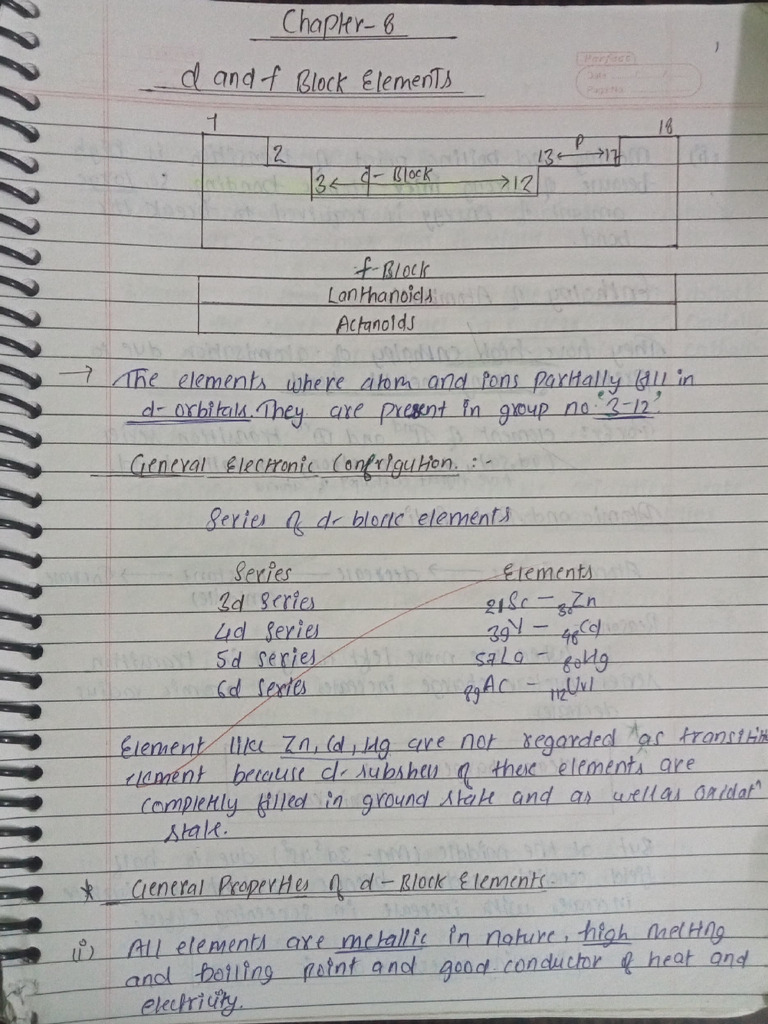 Chapter-8
d and f Block Elements
1 18
2 13 ↔ P 17
3 ← d-Block → 12
f-Block
Lanthanoids
Actanoids
→ The elements where atom and ions partially fill in
d-orbitals. They are present in group no. '3-12'.
General Electronic Confrigution. :-
Series of d-block elements
Series Elements
3d series 21Sc - 30Zn
4d series 39Y - 48Cd
5d series 57La - 80Hg
6d series 89Ac - 112Uvl
Element like Zn, Cd, Hg are not regarded as transitin
element because d-subshell of these elements are
completly filled in ground state and as well as oxidatn
state.
* General Properties of d-Block Elements.
(i) All elements are metallic in nature, high melting
and boiling point and good conductor of heat and
electricity.